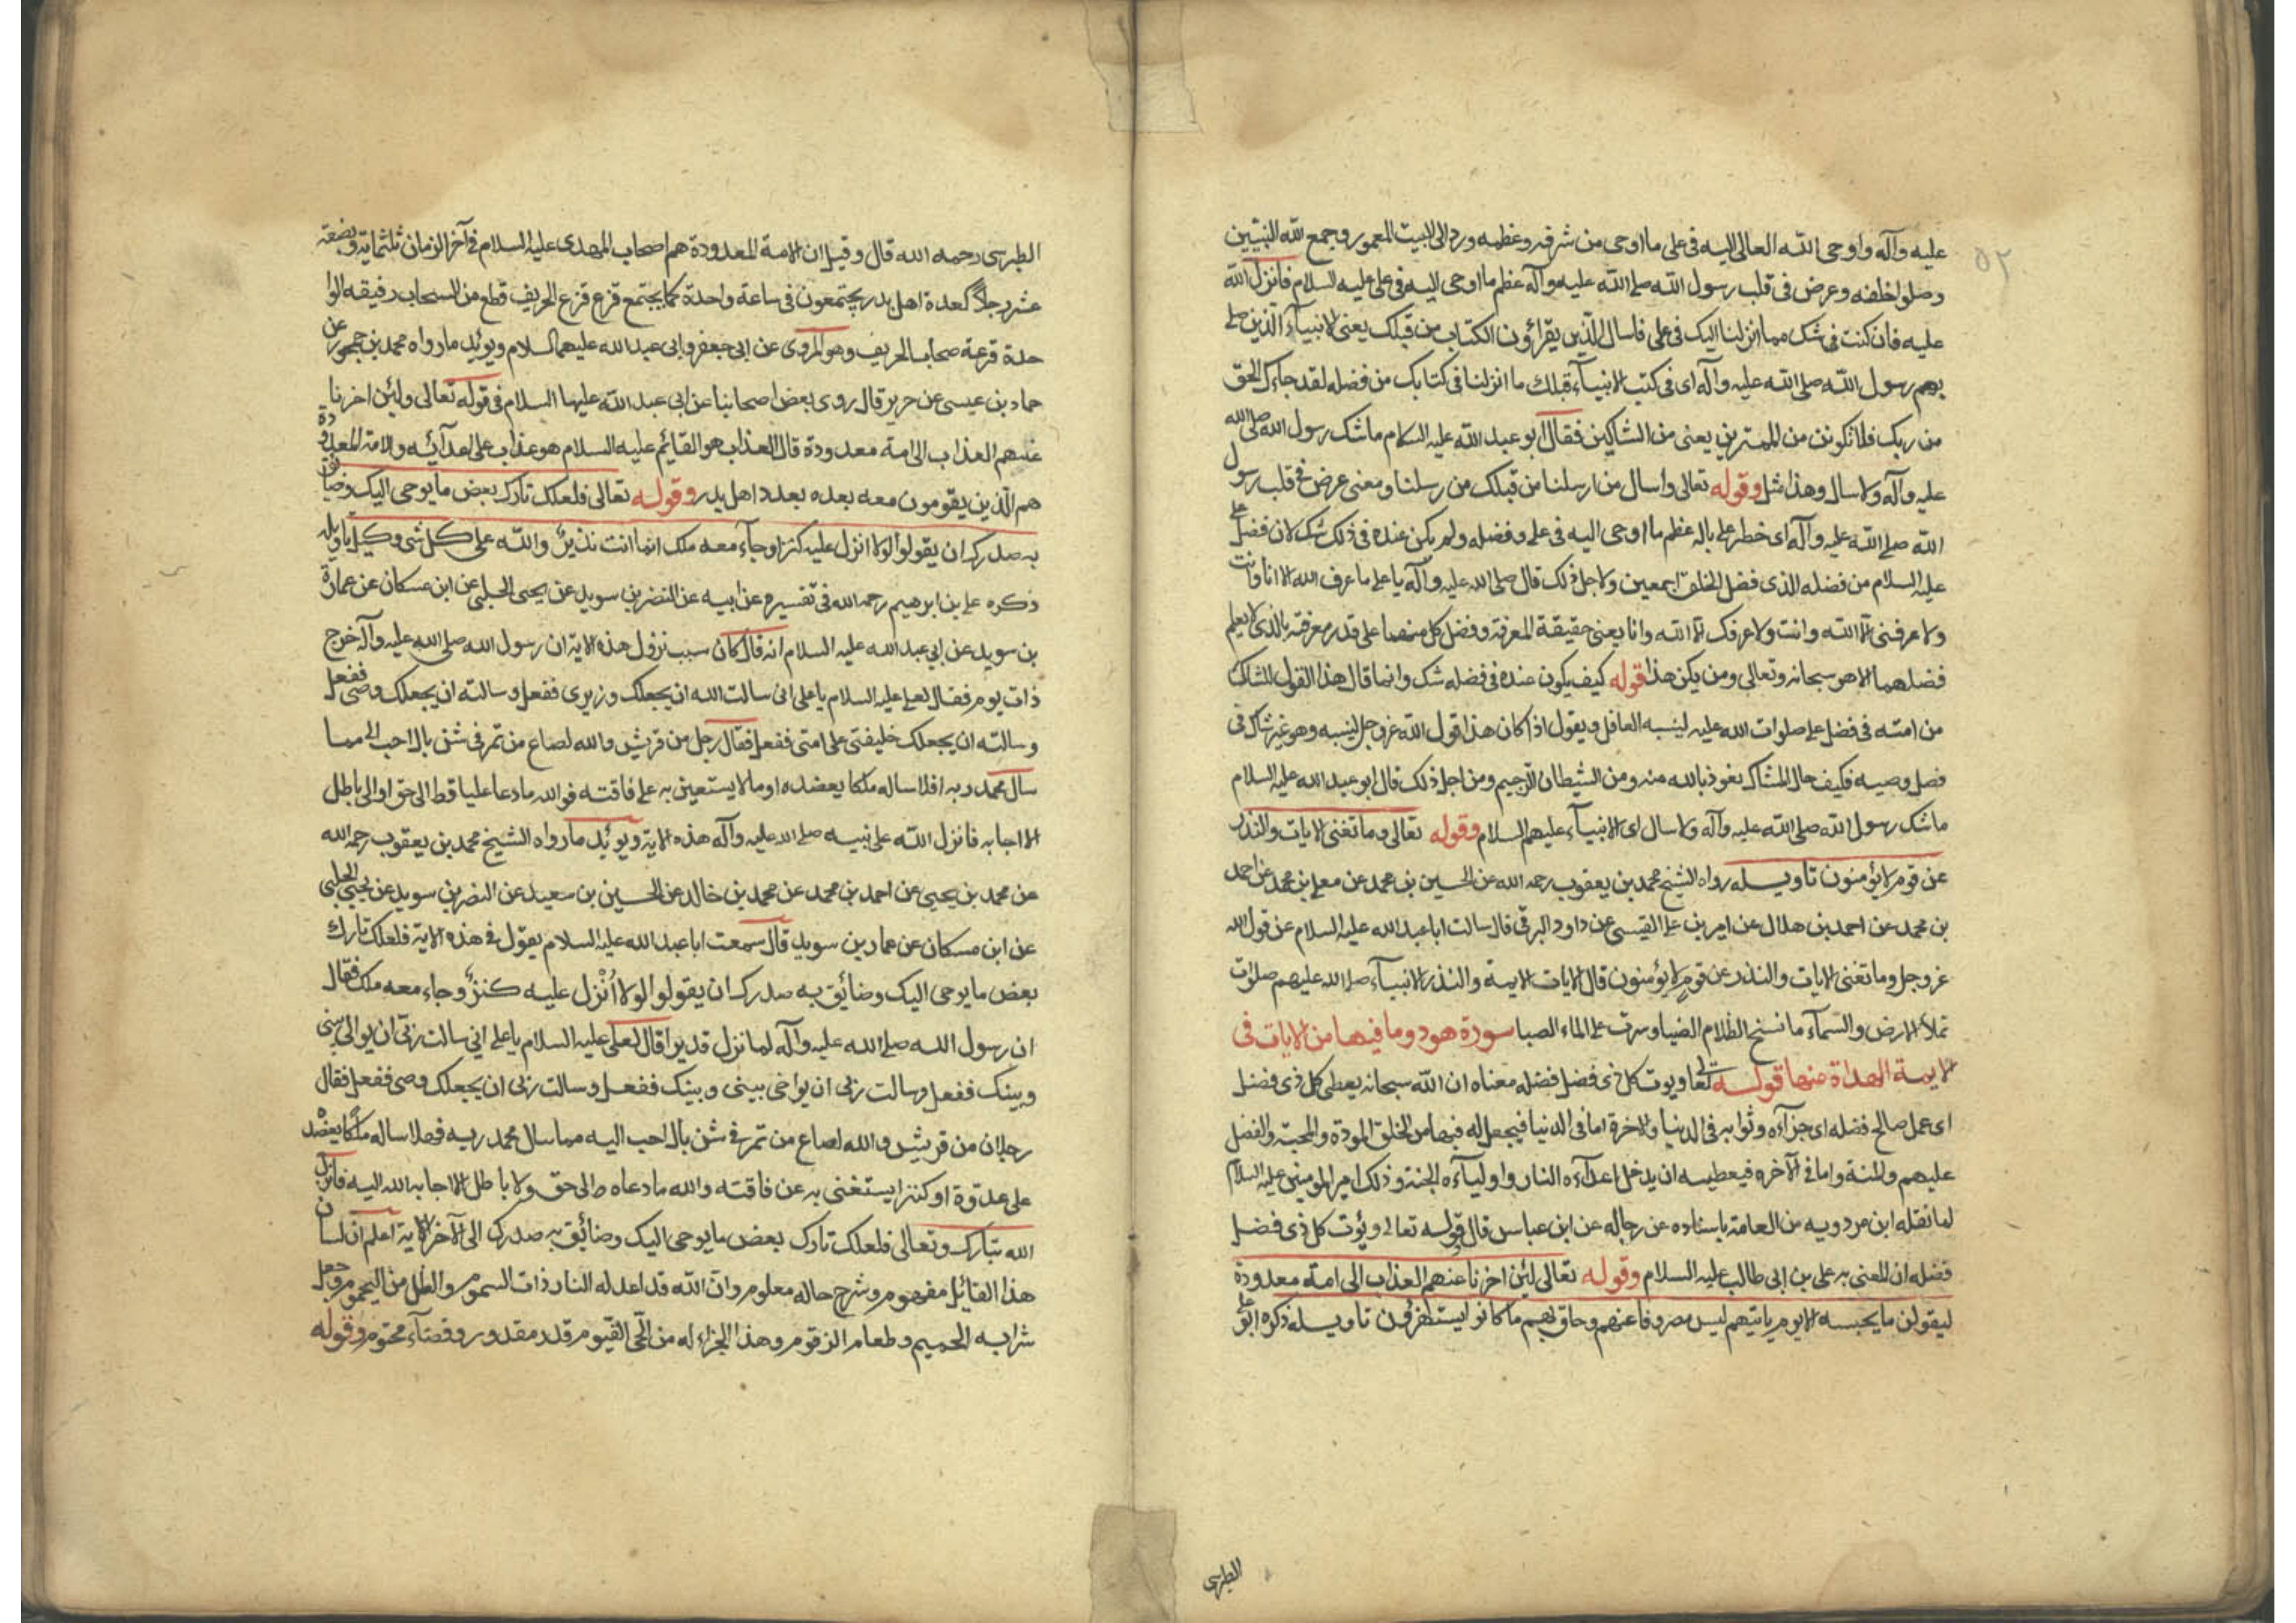 ٥٢
عليه وآله واوحى الله تعالى اليه فى على ما اوحى من شرفه وعظمه ورد الى البيت المعمور وجمع الله النبيين
وصلوا خلفه وعرض فى قلب رسول الله صلى الله عليه وآله عظم ما اوحى اليه فى على عليه السلام فانزل الله
عليه فان كنت فى شك مما انزلنا اليك فى على فاسال الذين يقراؤن الكتاب من قبلك يعنى الانبيآء الذين صلى
بهم رسول الله صلى الله عليه وآله اى فى كتب الانبيآء قبلك ما انزلنا فى كتابك من فضله لقد جاءك الحق
من ربك فلا تكونن من الممترين يعنى من الشاكين فقال ابو عبد الله عليه السلام ما شك رسول الله صلى الله
عليه وآله ولا سال وهذا مثل وقوله تعالى واسال من ارسلنا من قبلك من رسلنا ومعنى عرض فى قلب رسول
الله صلى الله عليه وآله اى خطر على باله عظم ما اوحى اليه فى على وفضله ولم يكن عنده فى ذلك شك لان فضل على
عليه السلام من فضله الذى فضل الخلق اجمعين ولاجل ذلك قال صلى الله عليه وآله يا على ما عرف الله الا انا وانت
ولا عرفنى الا الله وانت ولا عرفك الا الله وانا يعنى حقيقة المعرفة وفضل كل منهما على قدر معرفته بالذى لا يعلم
فضلهما الا هو سبحانه وتعالى ومن يكن هذا قوله كيف يكون عنده فى فضله شك وانما قال هذا القول للشاك
من امته فى فضل على صلوات الله عليه لينبه الغافل ويقول اذا كان هذا قول الله عز وجل لنبيه وهو غير شاك فى
فضل وصيه فكيف حال الشاك نعوذ بالله منه ومن الشيطان الرجيم ومن اجل ذلك قال ابو عبد الله عليه السلام
ما شك رسول الله صلى الله عليه وآله ولا سال اى الانبيآء عليهم السلام وقوله تعالى وما تغنى الايات والنذر
عن قوم لا يؤمنون تاويله رواه الشيخ محمد بن يعقوب رحمه الله عن الحسين بن محمد عن معلى بن محمد عن احمد
بن محمد عن احمد بن هلال عن امير بن على القيسى عن داود البرقى قال سالت ابا عبد الله عليه السلام عن قول الله
عز وجل وما تغنى الايات والنذر عن قوم لا يؤمنون قال الايات الايمة والنذر الانبيآء صلى الله عليهم صلوات
تملأ الارض والسمآء ما نسخ الظلام الضيا وسرت على الماء الصبا سورة هود وما فيها من الايات فى
الايمة الهداة منها قوله تعالى ويوت كل ذى فضل فضله معناه ان الله سبحانه يعطى كل ذى فضل
اى عمل صالح فضله اى جزآءه وثوابه فى الدنيا والاخرة اما فى الدنيا فيجعل له فيها من الخلق المودة والمحبة والفضل
عليهم والمنة واما فى الآخره فيعطيه ان يدخل اعدآءه النار واوليآءه الجنة وذلك امير المومنين عليه السلام
لما نقله ابن مردويه من العامة باسناده عن رجاله عن ابن عباس قال قوله تعالى ويؤت كل ذى فضل
فضله ان المعنى به على بن ابى طالب عليه السلام وقوله تعالى لئن اخرنا عنهم العذاب الى امة معدودة
ليقولن ما يحبسه الا يوم ياتيهم ليس مصروفا عنهم وحاق بهم ما كانوا به يستهزؤن تاويله ذكره ابو على
الطبرسى
الطبرسى رحمه الله قال وقيل ان الامة المعدودة هم اصحاب المهدى عليه السلام فى آخر الزمان ثلثماية وبضعة
عشر رجلا كعدة اهل بدر يجتمعون فى ساعة واحدة كما يجتمع قزع قزع الخريف قطع من السحاب رقيقه الوا
حدة قزعة سحاب الخريف وهو المروى عن ابى جعفر وابى عبد الله عليهما السلام ويوئد ما رواه محمد بن جمهور عن
حماد بن عيسى عن حريز قال روى بعض اصحابنا عن ابى عبد الله عليها السلام فى قوله تعالى ولئن اخرنا
عنهم العذاب الى امة معدودة قال العذاب هو القائم عليه السلام هو عذاب على اعدآئه والامة المعدودة
هم الذين يقومون معه بعده بعدد اهل بدر وقوله تعالى فلعلك تارك بعض ما يوحى اليك وضائق
به صدرك ان يقولوا لولا انزل عليه كنز او جآء معه ملك انما انت نذير والله على كل شى وكيل تاويله
ذكره على بن ابرهيم رحمه الله فى تفسيره عن ابيه عن النضر بن سويد عن يحيى الحلبى عن ابن مسكان عن عمارة
بن سويد عن ابى عبد الله عليه السلام انه قال كان سبب نزول هذه الاية ان رسول الله صلى الله عليه وآله خرج
ذات يوم فقال لعلى عليه السلام يا على انى سالت الله ان يجعلك وزيرى ففعل وسالته ان يجعلك وصى ففعل
وسالته ان يجعلك خليفتى على امتى ففعل فقال رجل من قريش والله لصاع من تمر فى شن بال احب الى مما
سال محمد ربه افلا ساله ملكا يعضده او مالا يستعين به على فاقته فوالله ما دعا عليا قط الى حق او الى باطل
الا اجابه فانزل الله على نبيه صلى الله عليه وآله هذه الاية ويوئد ما رواه الشيخ محمد بن يعقوب رحمه الله
عن محمد بن يحيى عن احمد بن محمد عن محمد بن خالد عن الحسين بن سعيد عن النضر بن سويد عن يحيى الحلبى
عن ابن مسكان عن عمار بن سويد قال سمعت ابا عبد الله عليه السلام يقول فى هذه الاية فلعلك تارك
بعض ما يوحى اليك وضائق به صدرك ان يقولوا لولا أُنْزل عليه كنزٌ وجاء معه ملك فقال
ان رسول الله صلى الله عليه وآله لما نزل قديرا قال لعلى عليه السلام يا على انى سالت ربى ان يوالى بينى
وبينك ففعل وسالت ربى ان يواخى بينى وبينك ففعل وسالت ربى ان يجعلك وصى ففعل فقال
رجلان من قريش والله لصاع من تمر فى شن بال احب اليه مما سال محمد ربه فهلا ساله ملكا يعضده
على عدوة او كنزا يستغنى به عن فاقته والله ما دعاه الى حق ولا باطل الا اجابه الله اليه فانزل
الله تبارك وتعالى فلعلك تارك بعض ما يوحى اليك وضائق به صدرك الى الآخر الاية اعلم ان لسان
هذا القائل مفهوم وشرح حاله معلوم وان الله قد اعد له النار ذات السموم والظل من اليحموم وجعل
شرابه الحميم وطعام الزقوم وهذا الجزاء له من الحى القيوم قدر مقدور وقضآء محتوم وقوله